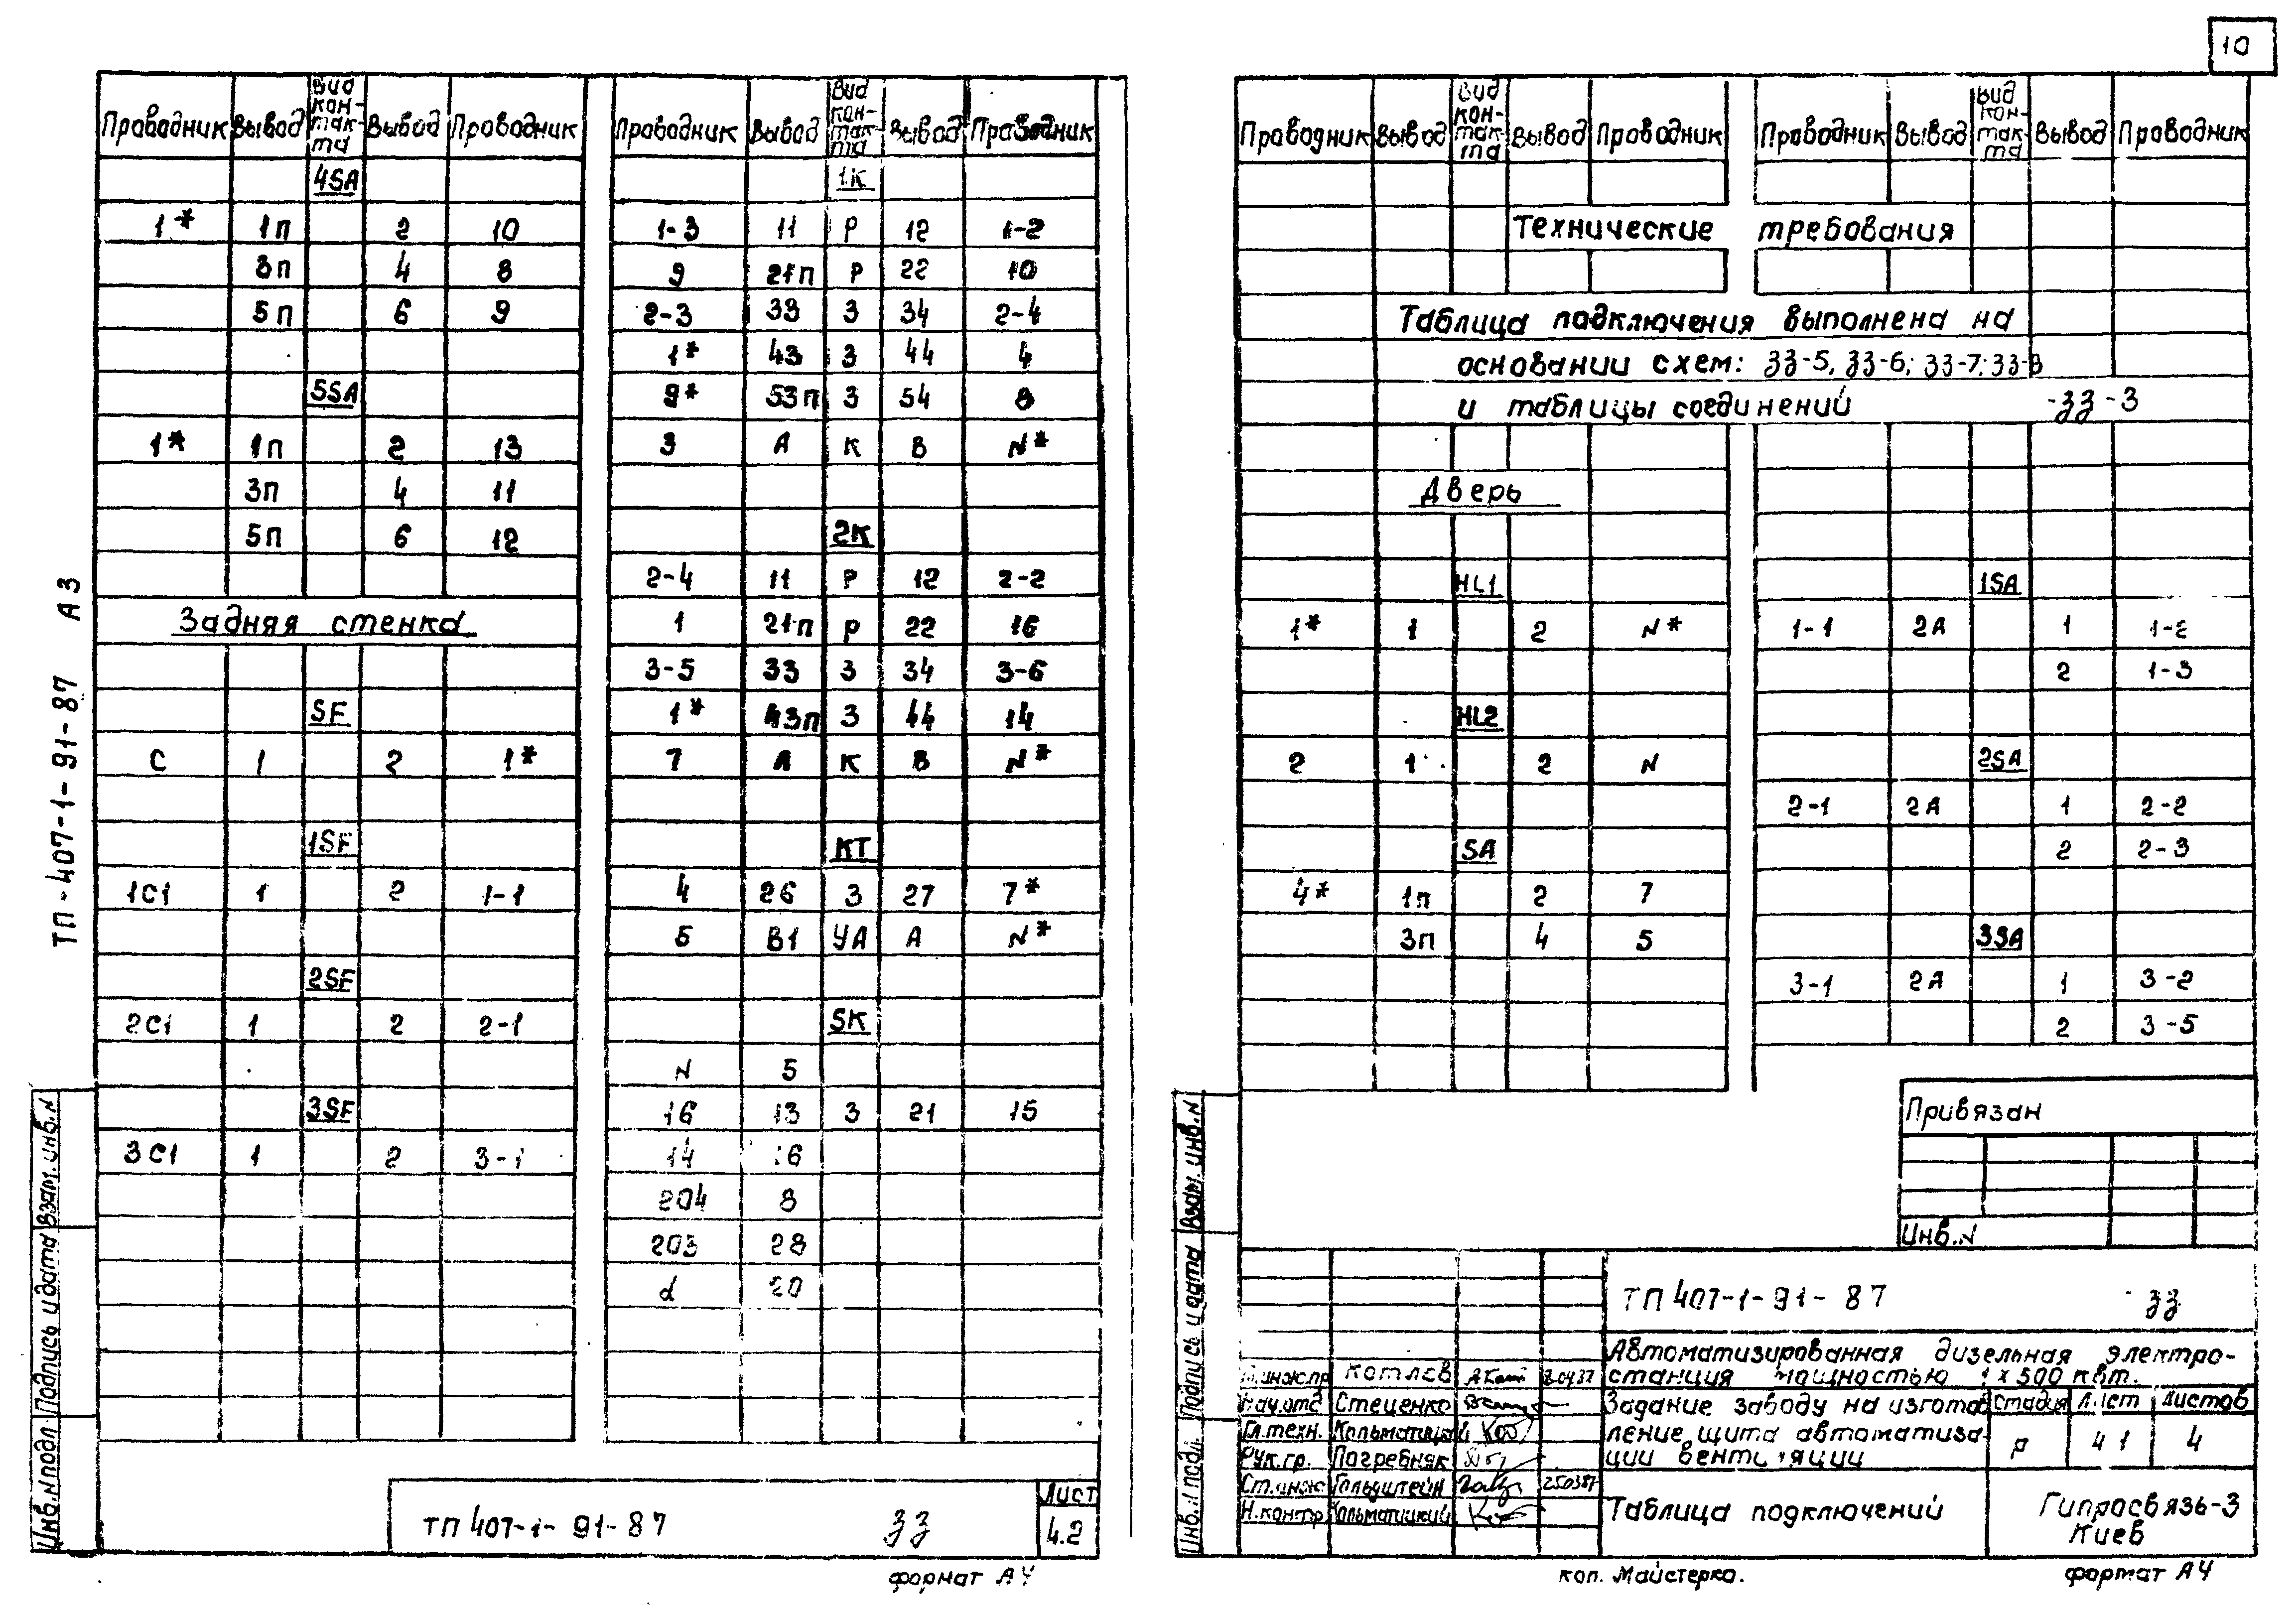 10
Проводник Вывод Вид кон-так-та Вывод Проводник
4SA
1* 1п 2 10
3п 4 8
5п 6 9
5SA
1* 1п 2 13
3п 4 11
5п 6 12
Задняя стенка
SF
С 1 2 1*
1SF
1С1 1 2 1-1
2SF
2С1 1 2 2-1
3SF
3С1 1 2 3-1
Проводник Вывод Вид кон-так-та Вывод Проводник
1К
1-3 11 Р 12 1-2
9 21п Р 22 10
2-3 33 З 34 2-4
1* 43 З 44 4
9* 53п З 54 8
3 А К В N*
2К
2-4 11 Р 12 2-2
1 21п Р 22 16
3-5 33 З 34 3-6
1* 43п З 44 14
7 А К В N*
КТ
4 26 З 27 7*
5 В1 УА А N*
SK
N 5
16 13 З 21 15
14 16
204 8
203 28
d 20
ТП-407-1-91-87 А3
Взам. инв. N
Подпись и дата
Инв. N подл.
ТП 407-1-91-87 ЗЗ
Лист
4.2
формат А4
Проводник Вывод Вид кон-так-та Вывод Проводник
Проводник Вывод Вид кон-так-та Вывод Проводник
Технические требования
Таблица подключения выполнена на
основании схем: ЗЗ-5, ЗЗ-6; ЗЗ-7; ЗЗ-8
и таблицы соединений -ЗЗ-3
Дверь
HL1
1* 1 2 N*
HL2
2 1 2 N
SA
4* 1п 2 7
3п 4 5
1SA
1-1 2А 1 1-2
2 1-3
2SA
2-1 2А 1 2-2
2 2-3
3SA
3-1 2А 1 3-2
2 3-5
Привязан
Инв. N
Взам. инв. N
Подпись и дата
Инв. N подл.
ТП 407-1-91-87 ЗЗ
Гл.инж.пр Котлев
Нач.отд Стеценко
Гл.техн. Кальматицкий
Рук.гр. Погребняк
Ст.инж Гольдштейн 250387
Н.контр Кальматицкий
Автоматизированная дизельная электро-
станция мощностью 1х500 квт.
Задание заводу на изготов
ление щита автоматиза-
ции вентиляции
Стадия Лист Листов
р 4 1 4
Таблица подключений
Гипросвязь-3
Киев
коп. Майстерко.
формат А4